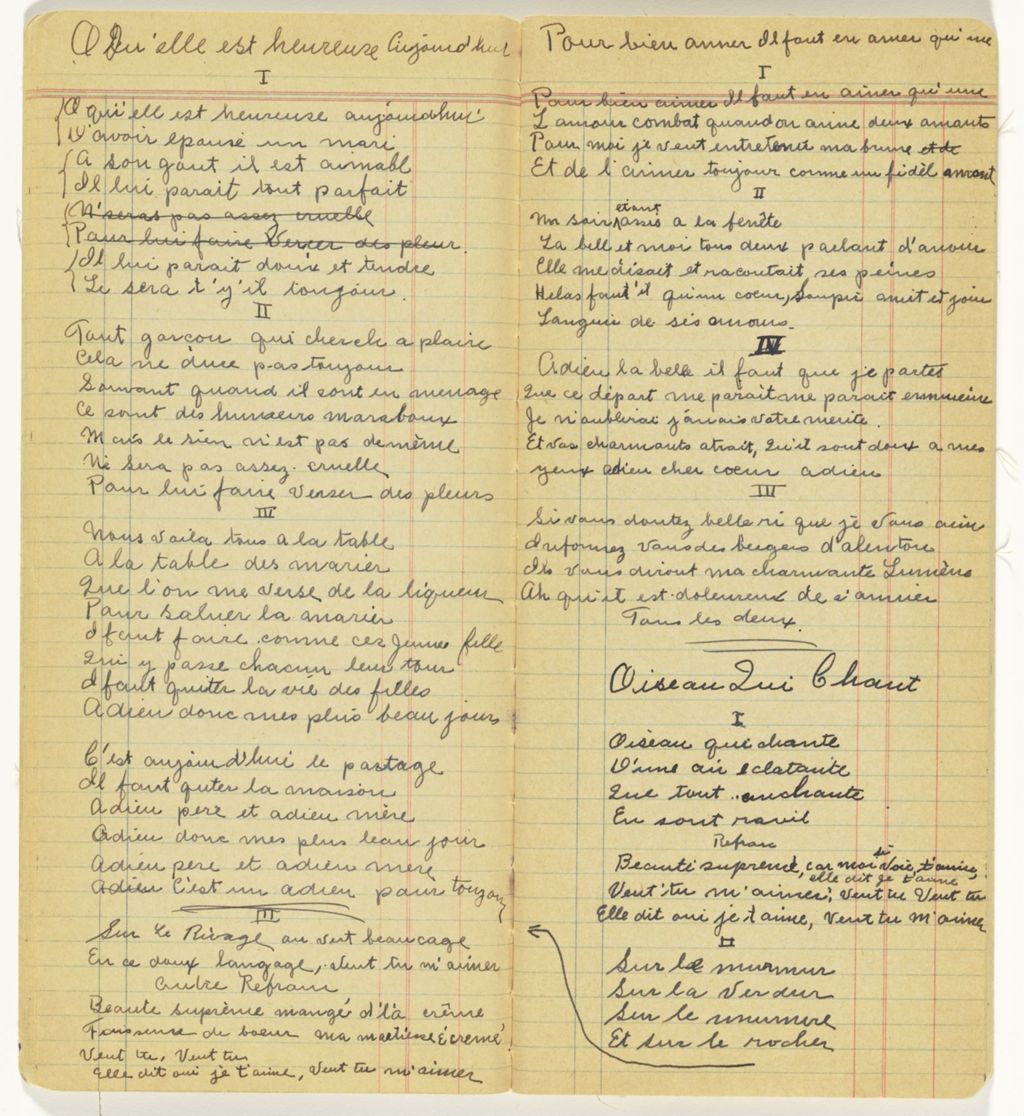 O Qu'elle est heureuse Aujourd'hui
I
O qu'ell est heureuse aujourd'hui
D'avoir epousé un mari
A son gout il est aimabl
Il lui parait tout parfait
N'seras pas assez cruelle
Pour lui faire Verser des pleur.
Il lui parait doux et tendre
Le sera t'y'il toujour.
II
Tout garcon qui cherche a plaire
Cela ne dure pas toujour
Souvant quand il sont en menage
Ce sont des humeurs maraboux
Mais le sien n'est pas de même
Ne sera pas assez cruelle
Pour lui faire verser des pleurs
III
Nous voila tous a la table
A la table des marier
Que l'on me verse de la liqueur
Pour saluer la marier
I faut faire comme ces jeune fille
Qui y passe chacun leur tour
I faut quiter la vie des filles
Adieu donc mes plus beau jours
C'est aujourd'hui le partage
Il faut quter la maison
Adieu pere et adieu mère
Adieu donc mes plus beau jour
Adieu pere et adieu mere
Adieu C'est un adieu pour toujour
III
Sur Le Rivage au vert beaucage
En ce doux langage, Veut tu m'aimer
autre Refrain
Beaute suprème mangé d'là crême
Faiseuse de boeur ma
Veut tu, Veut tu
Elle dit oui je t'aime, veut tu m'aimer
Pour bien aimer Il faut en aimer qu'une
I
Pour bien aimer Il faut en aimer qu'une
L'amour combat quand on aime deux amants
Pour moi je veut entretenir ma brune et de
Et de l'aimer toujour comme un fidèl amant
II
Un soir étant assis a la fenête
La bell et moi tous deux parlant d'amour
Elle me disait et racoutait ses peines
Helas faut'il qu'un coeur, Soupir amit et jour
Languir de ses amours.
IV
Adieu la belle il faut que je partes
Que ce départ me parait me parait ennuieu
Je n'oublirai jamais votre merite.
Et vos charmants atrait, Qu'il sont doux a mes
yeux adieu cher coeur adieu
III
Si vous doutez belle si que je Vous aim
Informez vous des bergers d'alentour
Ils vous diront ma charmante Lumière
Ah qu'il est doloureux de s'aimer
Tous les deux.
Oiseau Qui Chant
I
Oiseau qui chante
D'une air eclatante
Que tout enchante
En sont ravil
Refrain
Beauté supreme, car moi si Voie, t'aime
elle dit je t'aime
Veut'tu m'aimer, Veut tu Veut tu
Elle dit oui je t'aime, Veut tu m'aimer
II
Sur le murmur
Sur la Verdur
Sur le murmure
Et sur le rocher